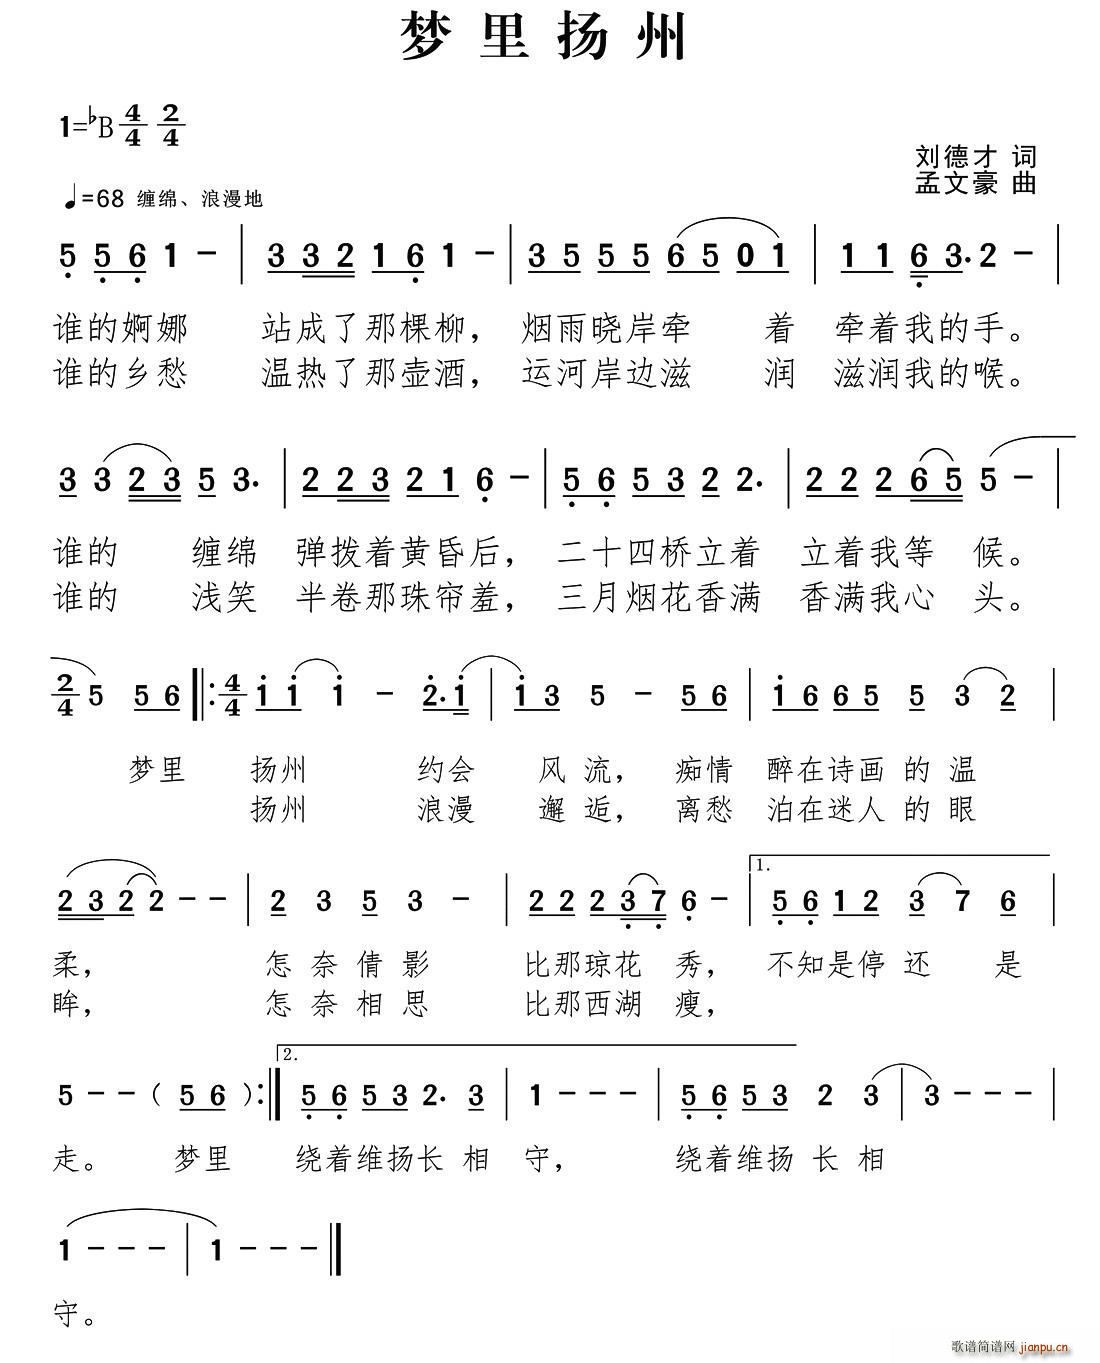 梦里扬州
1=♭B 4/4 2/4
刘德才 词
孟文豪 曲
♩=68 缠绵、浪漫地
5 5 6 1 － | 3 3 2 1 6 1 － | 3 5 5 5 6 5 0 1 | 1 1 6 3. 2 － |
谁的婀娜 站成了那棵柳， 烟雨晓岸牵 着 牵着我的手。
谁的乡愁 温热了那壶酒， 运河岸边滋 润 滋润我的喉。
3 3 2 3 5 3. | 2 2 3 2 1 6 － | 5 6 5 3 2 2. | 2 2 2 6 5 5 － |
谁的 缠绵 弹拨着黄昏后， 二十四桥立着 立着我等 候。
谁的 浅笑 半卷那珠帘羞， 三月烟花香满 香满我心 头。
2/4 5 5 6 ‖: 4/4 1 1 1 － 2. 1 | 1 3 5 － 5 6 | 1 6 6 5 5 3 2 |
梦里 扬州 约会 风流， 痴情 醉在诗画的温
扬州 浪漫 邂逅， 离愁 泊在迷人的眼
2 3 2 2 － － | 2 3 5 3 － | 2 2 2 3 7 6 － | 1. 5 6 1 2 3 7 6 |
柔， 怎奈倩影 比那琼花 秀， 不知是停还 是
眸， 怎奈相思 比那西湖 瘦，
5 － － （ 5 6 ）:‖ 2. 5 6 5 3 2. 3 | 1 － － － | 5 6 5 3 2 3 | 3 － － － |
走。 梦里 绕着维扬长 相 守， 绕着维扬 长 相
1 － － － | 1 － － － ‖
守。
歌谱简谱网 jianpu.cn